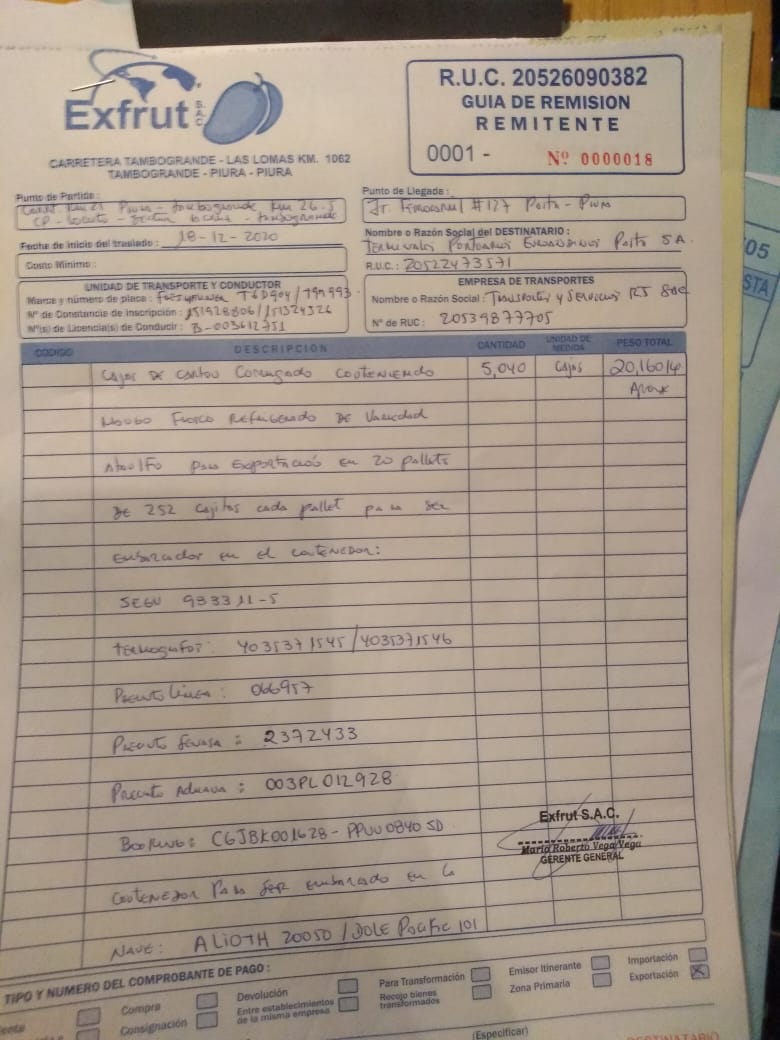 Exfrut S.A.C.
R.U.C. 20526090382
GUIA DE REMISION
REMITENTE
0001 - Nº 0000018
CARRETERA TAMBOGRANDE - LAS LOMAS KM. 1062
TAMBOGRANDE - PIURA - PIURA
Punto de Partida :
Carr. Km 21 Piura - tambogrande Km 26.5
CP - Locuto - Sector - tambogrande
Punto de Llegada :
Jr. Ferrocarril #127 Paita - Piura
Fecha de inicio del traslado : 18-12-2020
Nombre o Razón Social del DESTINATARIO :
Terminales Portuarios Euroandinos Paita S.A.
Costo Mínimo :
R.U.C. : 20522473571
UNIDAD DE TRANSPORTE Y CONDUCTOR
Marca y número de placa : Freightliner T6D904 /
Nº de Constancia de inscripción : 151928806 / 151324326
Nº(s) de Licencia(s) de Conducir : B-003612751
EMPRESA DE TRANSPORTES
Nombre o Razón Social : Transportes y Servicios RJ SAC
Nº de RUC : 20539877705
CODIGO DESCRIPCION CANTIDAD UNIDAD DE MEDIDA PESO TOTAL
Cajas de Carton Corrugado Conteniendo 5,040 Cajas 20,160
Aprox
Mango Fresco Refrigerado de Variedad
Ataulfo para Exportación en 20 pallets
de 252 Cajitas cada pallet para ser
embarcados en el contenedor:
SEGU 933311-5
termografos: 4035371545 / 4035371546
Precinto Linea : 066957
Precinto Senasa : 2372433
Precinto Aduana : 003PL012928
Booking : CGJBK001628 - PPUU0840SD
Contenedor para ser embarcado en la
Nave : ALIOTH 20050 / DOLE Pacific 101
Exfrut S.A.C.
Mario Roberto Vega Vega
GERENTE GENERAL
TIPO Y NUMERO DEL COMPROBANTE DE PAGO :
Compra
Consignación
Devolución
Entre establecimientos de la misma empresa
Para Transformación
Recojo bienes transformados
Emisor Itinerante
Zona Primaria
Importación
Exportación X
(Especificar)
DESTINATARIO
05
STA